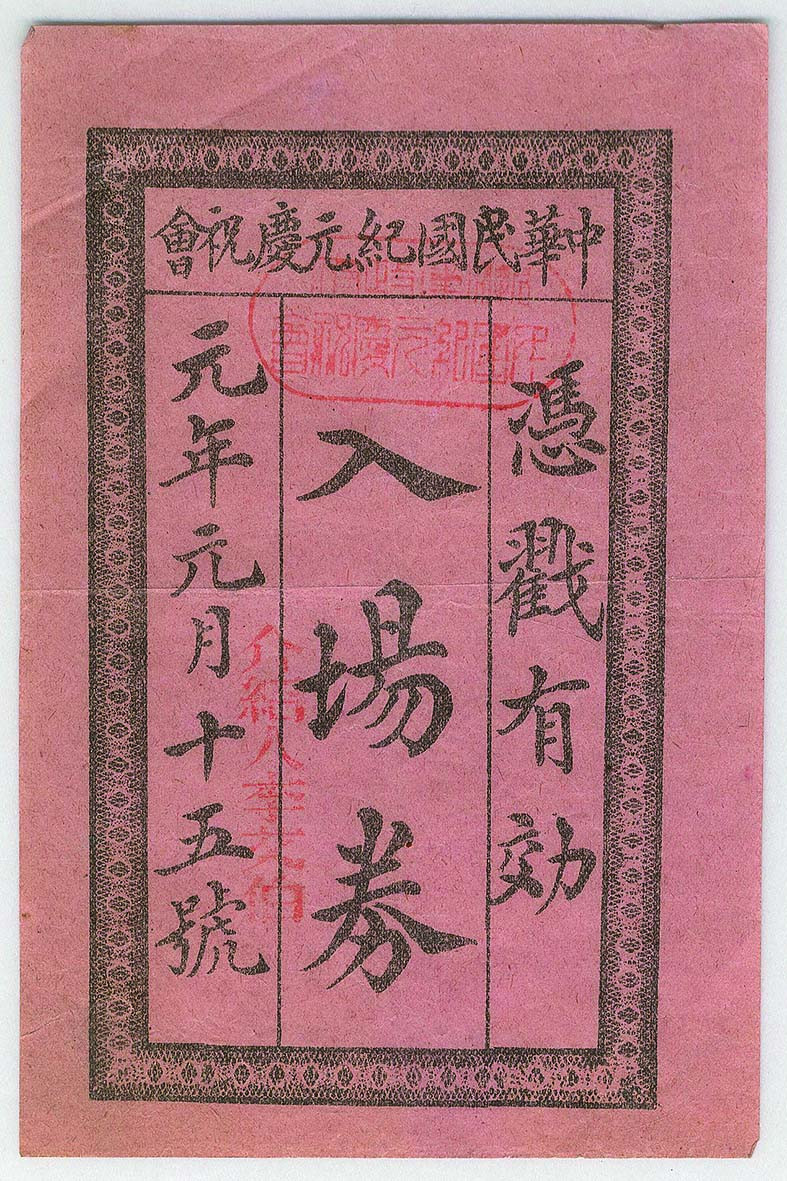 中華民國紀元慶祝會
憑戳有効
入場券
元年元月十五號
民國紀元慶祝會
介紹人李文伯